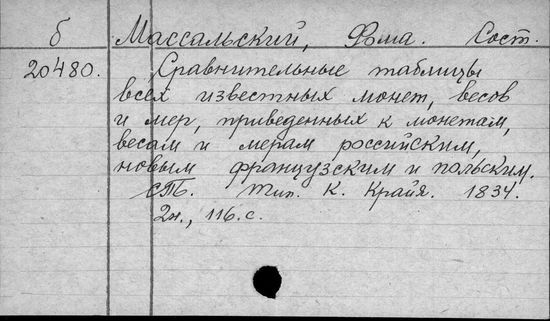 б Массальский, Фома. Сост.
20480. Сравнительные таблицы
всех известных монет, весов
и мер, приведенных к монетам,
весам и мерам российским,
новым французским и польским.
СПБ. Тип. К. Крайя. 1834.
2н., 116 с.